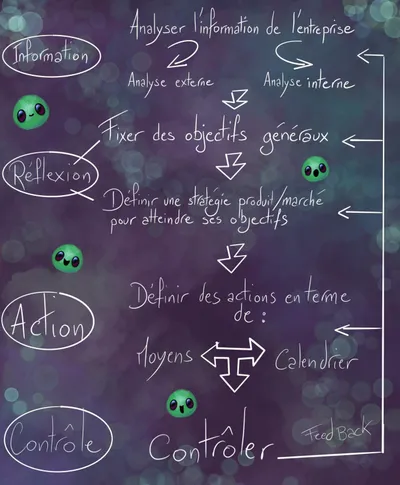 Analyser l'information de l'entreprise
Information
Analyse externe
Analyse interne
Fixer des objectifs généraux
Réflexion
Définir une stratégie produit/marché
pour atteindre ses objectifs
Définir des actions en terme
de :
Action
Moyens
Calendrier
Contrôle
Contrôler
FeedBack